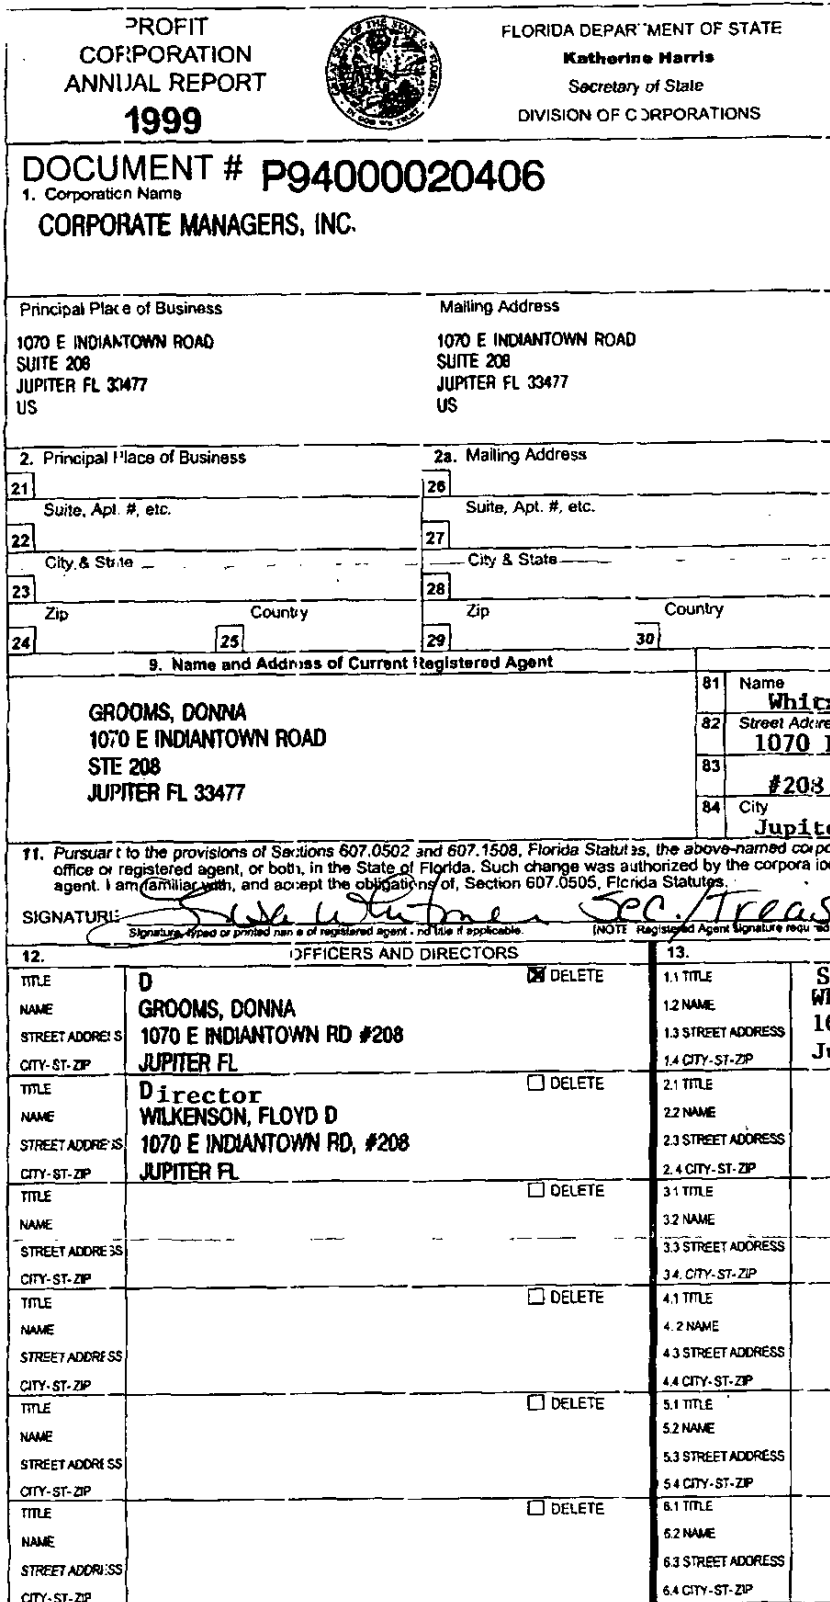 PROFIT
CORPORATION
ANNUAL REPORT
1999
FLORIDA DEPARTMENT OF STATE
Katherine Harris
Secretary of State
DIVISION OF CORPORATIONS
DOCUMENT # P94000020406
1. Corporation Name
CORPORATE MANAGERS, INC.
Principal Place of Business
Mailing Address
1070 E INDIANTOWN ROAD
SUITE 208
JUPITER FL 33477
US
1070 E INDIANTOWN ROAD
SUITE 208
JUPITER FL 33477
US
2. Principal Place of Business
2a. Mailing Address
21
26
Suite, Apt. #, etc.
Suite, Apt. #, etc.
22
27
City & State
City & State
23
28
Zip
Country
Zip
Country
24
25
29
30
9. Name and Address of Current Registered Agent
GROOMS, DONNA
1070 E INDIANTOWN ROAD
STE 208
JUPITER FL 33477
81 Name
82 Street
1070
83
#208
84 City
11. Pursuant to the provisions of Sections 607.0502 and 607.1508, Florida Statutes, the above-named
office or registered agent, or both, in the State of Florida. Such change was authorized by the
agent. I am familiar with, and accept the obligations of, Section 607.0505, Florida Statutes.
SIGNATURE Sec./Treas
Signature, typed or printed name of registered agent and title if applicable.
(NOTE Registered Agent signature required
12. OFFICERS AND DIRECTORS
13.
TITLE D DELETE
NAME GROOMS, DONNA
STREET ADDRESS 1070 E INDIANTOWN RD #208
CITY-ST-ZIP JUPITER FL
1.1 TITLE
1.2 NAME
1.3 STREET ADDRESS
1.4 CITY-ST-ZIP
TITLE Director DELETE
NAME WILKENSON, FLOYD D
STREET ADDRESS 1070 E INDIANTOWN RD, #208
CITY-ST-ZIP JUPITER FL
2.1 TITLE
2.2 NAME
2.3 STREET ADDRESS
2.4 CITY-ST-ZIP
TITLE DELETE
NAME
STREET ADDRESS
CITY-ST-ZIP
3.1 TITLE
3.2 NAME
3.3 STREET ADDRESS
3.4. CITY-ST-ZIP
TITLE DELETE
NAME
STREET ADDRESS
CITY-ST-ZIP
4.1 TITLE
4.2 NAME
4.3 STREET ADDRESS
4.4 CITY-ST-ZIP
TITLE DELETE
NAME
STREET ADDRESS
CITY-ST-ZIP
5.1 TITLE
5.2 NAME
5.3 STREET ADDRESS
5.4 CITY-ST-ZIP
TITLE DELETE
NAME
STREET ADDRESS
CITY-ST-ZIP
6.1 TITLE
6.2 NAME
6.3 STREET ADDRESS
6.4 CITY-ST-ZIP